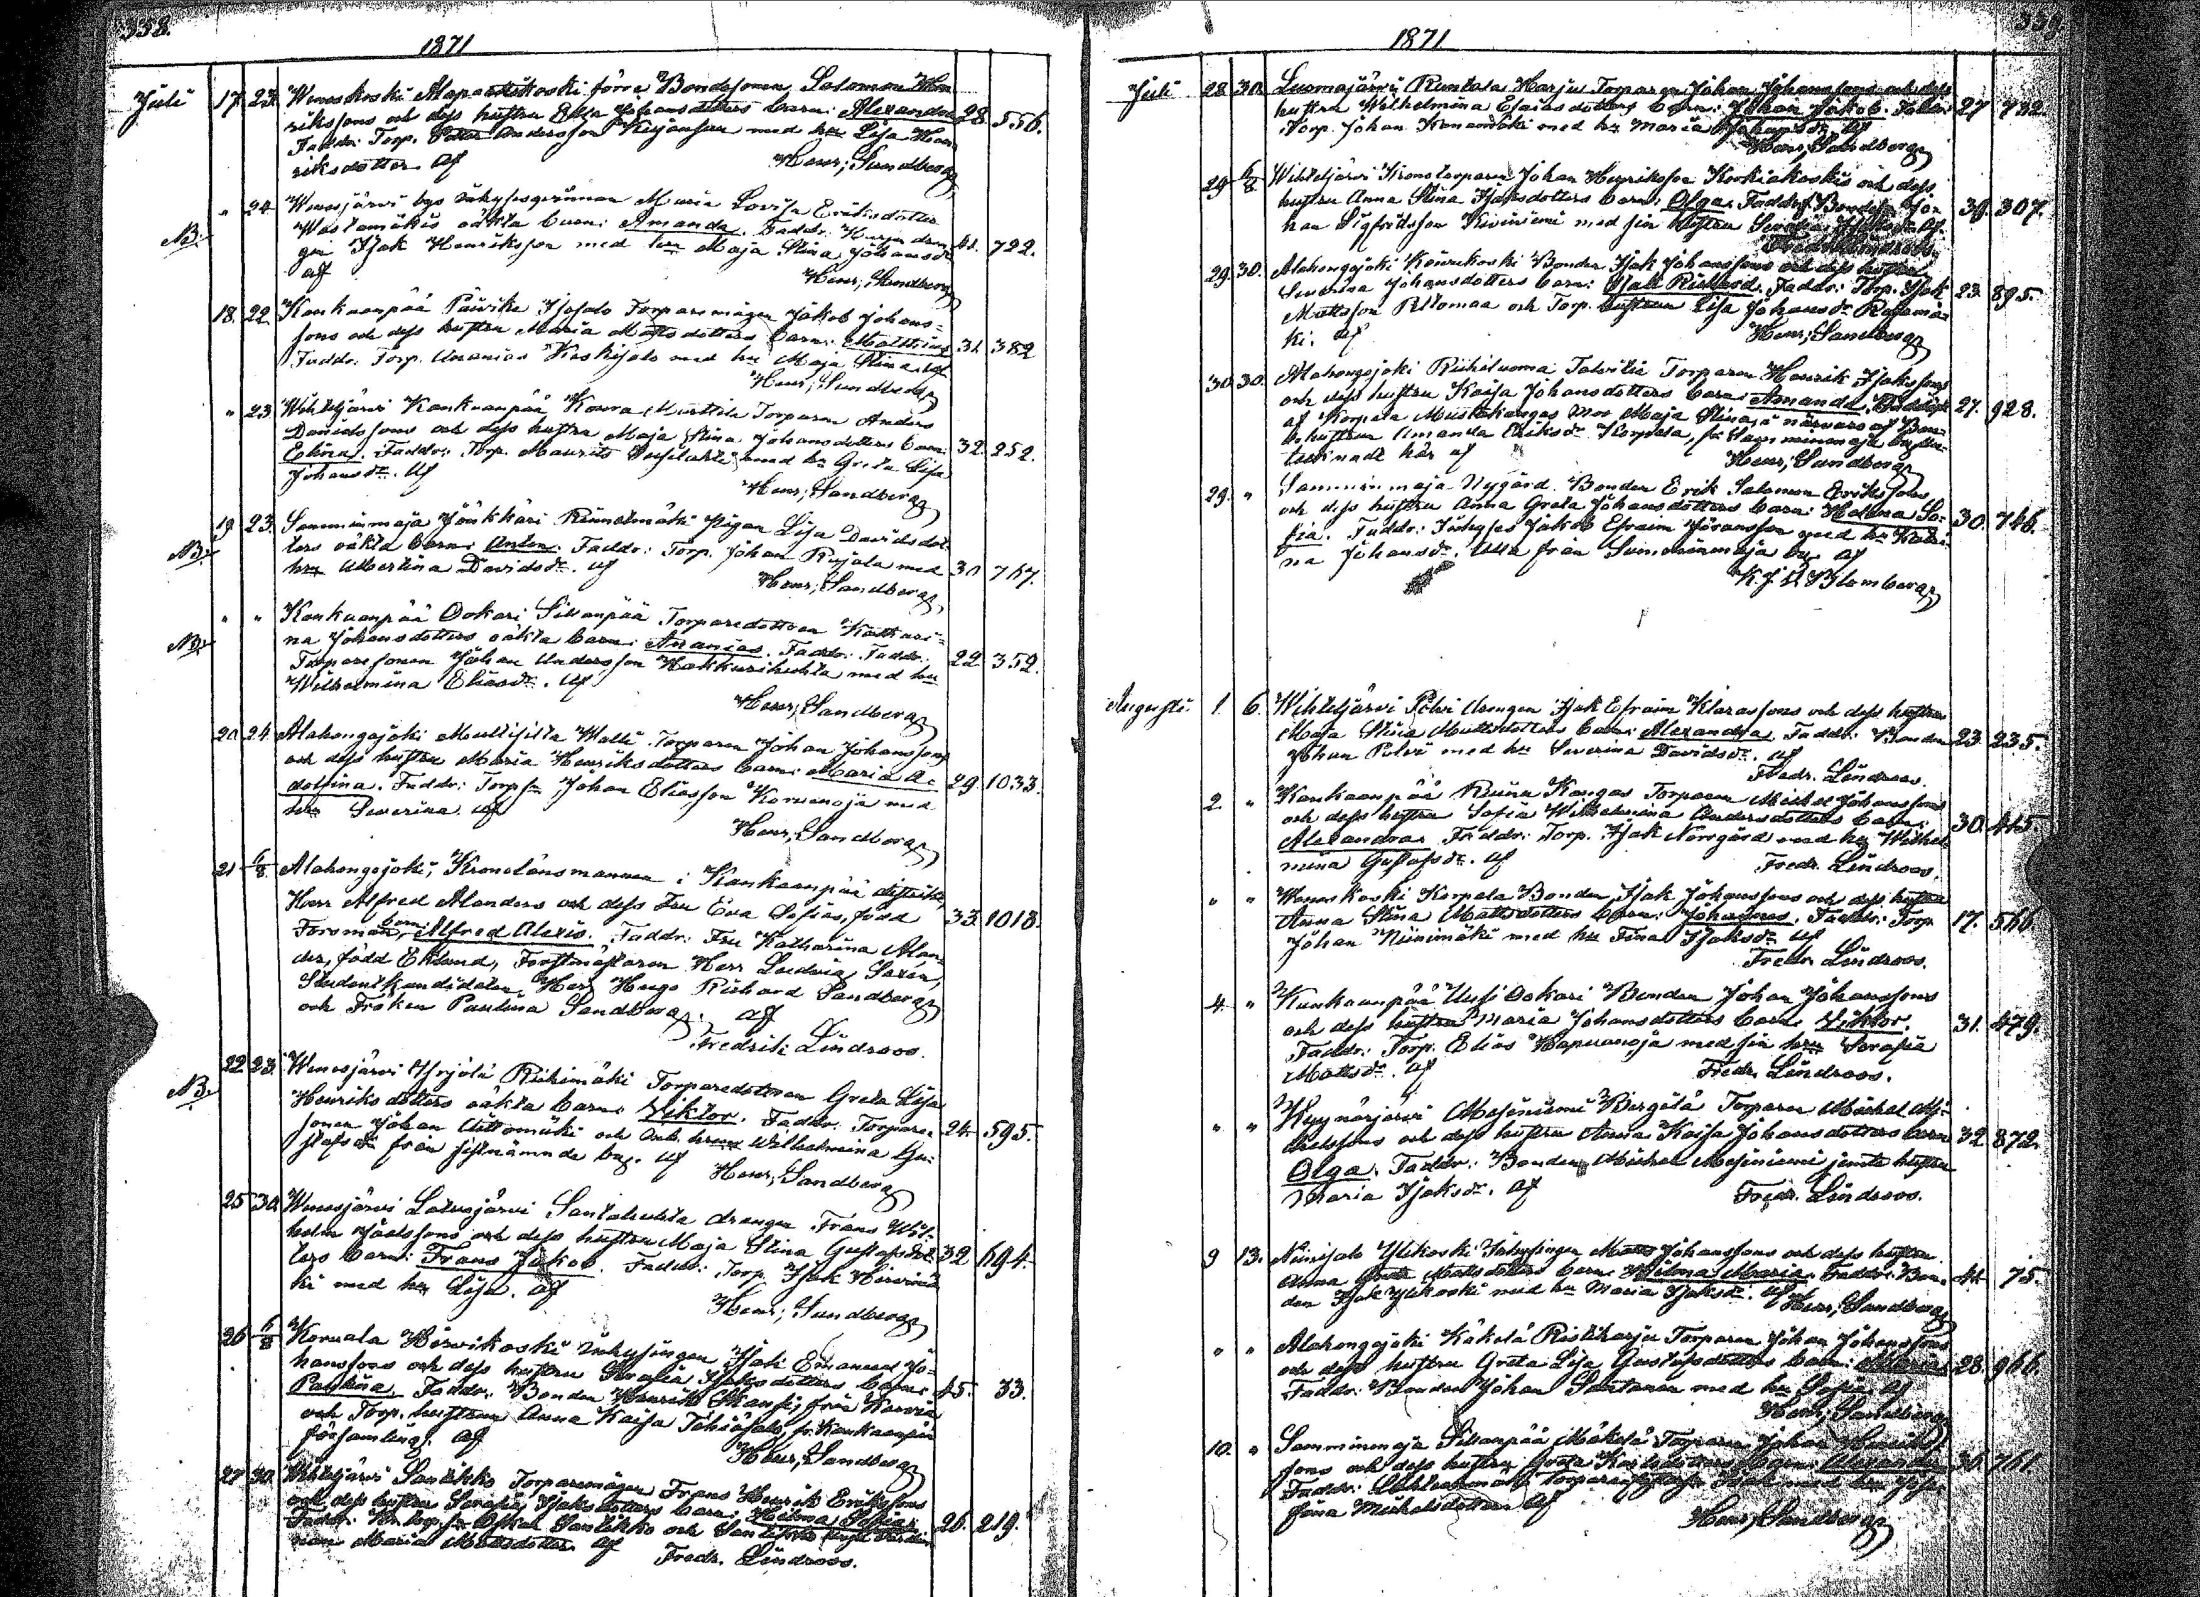 338.
1871
Juli 17. 23. Weneskoski Alapaattikoski förre Bondesonen Salomon Hen
rikssons och dess hustru Ulla Johansdotters barn: Alexandra 28. 556.
Faddr: Torp. Andersson med hu Lisa Hen
riksdotter. Af Henr; Sandberg
NB. " 24. Wenesjärvi bys inhysesqvinnan Maria Lovisa Eriksdotter
oäkta barn: Amanda. Faddr:
Isak Henriksson med hu Maja Stina Johansdr 41. 722.
Af Henr; Sandberg
18. 22. Kankaanpää Päivike Isosalo Torparemågen Jakob Johans=
sons och dess hustru Maria Mattsdotters barn: Matthias 31. 382
Faddr. Torp. Ananias Koskisalo med hu Maja Stina. Af
Henr; Sandberg
" 23. Wihteljärvi Kankaanpää Koura Torparen Anders
Davidssons och dess hustru Maja Stina Johansdotters barn: 32. 252.
Elina. Faddr: Torp. Maurits med hu Greta Lisa
Johansdr. Af
Henr; Sandberg
19. 23. Samminmaja Jönkkäri Pigan Lisa Davidsdot=
NB. ters oäkta barn: Anton. Faddr: Torp. Johan med 30 767.
hu Albertina Davidsdr. Af
Henr; Sandberg
" " Kankaanpää Ookari Sillanpää Torparedottren Kathari=
NB. na Johansdotters oäkta barn: Ananias. Faddr: Faddr: 22. 352.
Torparesonen Johan Andersson Hakkurihuhta med hu
Wilhelmina Eliasdr. Af
Henr; Sandberg
20. 24. Alahongojoki Multisilta Torparen Johan Johanssons
och dess hustru Maria Henriksdotters barn: Maria A=
dolfina. Faddr: Torp. Johan Eliasson Korvenoja med 29. 1033.
hu Severina. Af
Henr; Sandberg
21 6/8 Alahongojoki, Kronolänsmannen i Kankaanpää distrikt,
Herr Alfred Alanders och dess Fru Eva Sofias, född 33. 1018.
Forsman, barn: Alfred Alexis. Faddr: Fru Katharina Alan
der, född Eklund, Forstmästaren Herr Ludvig Saxén,
Studentkandidaten Herr Hugo Richard Sandberg
och Fröken Paulina Sandberg. Af
Fredrik Lindroos.
22 23. Wenesjärvi Yrjölä Riihimäki Torparedottren Greta Lisa
NB. Henriksdotters oäkta barn: Viktor. Faddr: Torpare= 24. 595.
sonen Johan och Wilhelmina Gu=
stafsdr från sistnämnde by. Af
Henr; Sandberg
25 30. Wenesjärvi Santahuhta drängen Frans Wil=
helm sons och dess hustru Maja Stina Gustafsdot= 32 694.
ters barn: Frans Jakob. Faddr: Torp. Isak
ki med hu Lisa. Af
Henr; Sandberg
26 6/8 Korvala Hirvikoski inhysingen Isak Emanuel Jo=
hanssons och dess hustru Serafia Isaksdotters barn:
Paulina. Faddr: Bonden Henrik från Karvia 45. 33.
och Torp. hustrun Anna Kaisa fr. Kankaanpää
församling. Af
Henr; Sandberg
27 30. Wihteljärvi Santikko Torparemågen Frans Henrik Erikssons
och dess hustru Serafia Isaksdotters barn: Hilma Sofia. 26. 219.
Faddr: Oskar Santikko och Santikko
Maria Mattsdotter. Af
Fredr. Lindroos.
339
1871
Juli 28. 30. Luomajärvi Rantala Harju Torparen Johan Johanssons och dess
hustru Wilhelmina Esaiasdotters barn: Johan Jakob. Faddr: 27 732.
Torp. Johan med hu Maria Johansdr. Af
Henr; Sandberg
29 6/8 Wihteljärvi Kronotorparen Johan Henriksson Korkiakoskis och dess
hustru Anna Stina Isaksdotters barn: Olga. Faddr: Jo= 39. 307.
han Sigfridsson Kiviniemi med sin hustru
29. 30. Alahongojoki Bonden Isak Johanssons och dess hustru
Severina Johansdotters barn: Isak Richard. Faddr: Torp. Isak 23. 895.
Mattsson och Torp. hustrun Lisa Johansdr
ki. Af Henr; Sandberg
30. 30. Alahongojoki Riihiluoma Torparen Henrik Isakssons
och dess hustru Kaisa Johansdotters barn: Amanda. 27. 928.
af Korpela Maja Stina, i närvaro af Bon=
dehustrun Amanda Eriksdr Korpela, fr. Samminmaja by,
här af
Henr; Sandberg
29. " Samminmaja Nygård Bonden Erik Salomon Erikssons
och dess hustru Anna Greta Johansdotters barn: Helena So= 30. 746.
fia. Faddr: Inhyses Jakob Efraim Göransson med hu Katari=
na Johansdr. Alla från Samminmaja by. Af
K. J. Blomberg
Augusti. 1. 6. Wihteljärvi Pelvi drängen Isak Efraim Klarassons och dess hustru
Maja Stina Mattsdotters barn: Alexandra. Faddr: Bonden 23. 235.
Johan Pelvi med hu Severina Davidsdr. Af
Fredr. Lindroos.
2. " Kankaanpää Kangas Torparen Michel Johanssons
och dess hustru Sofia Wilhelmina Andersdotters barn: 30. 445.
Alexandra. Faddr: Torp. Isak Norrgård med hu Wilhel=
mina Gustafsdr. Af Fredr. Lindroos.
" " Weneskoski Korpela Bonden Isak Johanssons och dess hustru
Anna Stina Mattsdotters barn: Johannes. Faddr: Torp. 17. 566.
Johan Niinimäki med hu Fina Isaksdr. Af
Fredr. Lindroos.
4. " Kankaanpää Uusi Ookari Bonden Johan Johanssons
och dess hustru Maria Johansdotters barn: Viktor. 31. 479.
Faddr: Torp. Elias Hapuanoja med sin hu Serafia
Mattsdr. Af Fredr. Lindroos.
" " Kyynärjärvi Mesiniemi Bergelä Torparen Michel Mi=
chelssons och dess hustru Anna Kaisa Johansdotters barn 32 872.
Olga. Faddr: Bonden Michel Mesiniemi jemte hustru
Maria Isaksdr. Af Fredr. Lindroos.
9 13. Niinisalo Ylikoski Inhysingen Matts Johanssons och dess hustru
Anna Greta Mattsdotters barn: Hilma Maria. Faddr: Bon= 41. 75.
den Isak Ylikoski med hu Maria Isaksdr. Af Henr; Sandberg
" " Alahongojoki Käkelä Ristiharju Torparen Johan Johanssons
och dess hustru Greta Lisa Gustafsdotters barn: Maria. 28. 966.
Faddr: Bonden Johan Santanen med hu Sofia. Af
Henr; Sandberg
10. " Samminmaja Sillanpää Mäkelä Torparen Johan Henriks=
sons och dess hustru Greta barn: Alexander 36. 761.
Faddr: med hu Jose=
fina Michelsdotter. Af
Henr; Sandberg